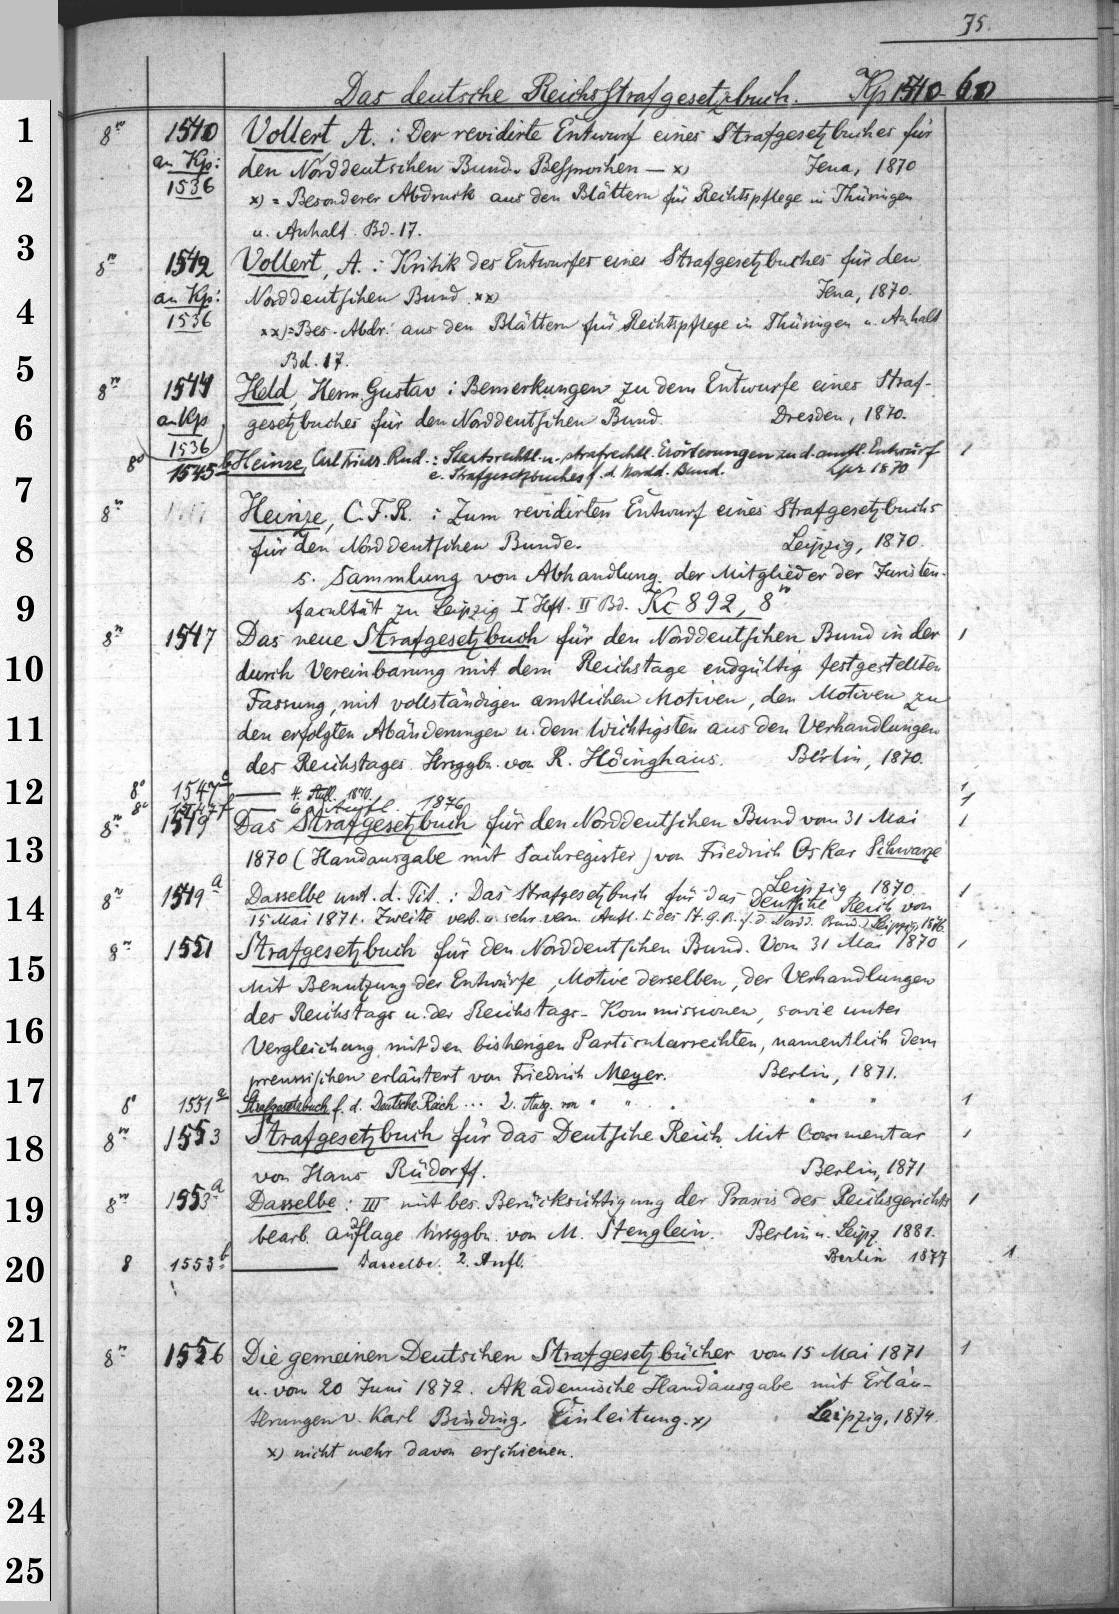 75.
Das deutsche Reichsstrafgesetzbuch. Kp 1540-60
1
8° 1540 Vollert, A. : Der revidirte Entwurf eines Strafgesetzbuches für
an Kp: den Norddeutschen Bund. Besprochen — x) Jena, 1870
2
1536 x) = Besonderer Abdruck aus den Blättern für Rechtspflege in Thüringen
u. Anhalt. Bd. 17.
3
8° 1542 Vollert, A. : Kritik des Entwurfes eines Strafgesetzbuches für den
an Kp: Norddeutschen Bund. xx) Jena, 1870.
4
1536 xx) = Bes. Abdr. aus den Blättern für Rechtspflege in Thüringen u. Anhalt
Bd. 17.
5
8° 1544 Held, Herm. Gustav : Bemerkungen zu dem Entwurfe eines Straf-
an Kp gesetzbuches für den Norddeutschen Bund. Dresden, 1870.
6
1536
8° 1545b Heinze, Carl Friedr. Rud. : Staatsrechtl. u. strafrechtl. Erörterungen zu d. amtl. Entwurf 1
e. Strafgesetzbuches f. d. Nordd. Bund. Lpz 1870
7
8° Heinze, C. F. R. : Zum revidirten Entwurf eines Strafgesetzbuchs
8
für den Norddeutschen Bunde. Leipzig, 1870.
s. Sammlung von Abhandlung. der Mitglieder der Juristen-
9
facultät zu Leipzig I Hft. II Bd. Kc 892, 8°
8° 1547 Das neue Strafgesetzbuch für den Norddeutschen Bund in der 1
10
durch Vereinbarung mit dem Reichstage endgültig festgestellten
Fassung, mit vollständigen amtlichen Motiven, den Motiven zu
11
den erfolgten Abänderungen u. dem Wichtigsten aus den Verhandlungen
des Reichstages. Hrsggbn. von R. Höinghaus. Berlin, 1870.
12
8° 1547e — 4. Aufl. 1870. 1
8° 1547f — 6. Aufl. 1876 1
8° 1549 Das Strafgesetzbuch für den Norddeutschen Bund vom 31 Mai 1
13
1870 (Handausgabe mit Sachregister) von Friedrich Oskar Schwarze
Leipzig, 1870.
14
8° 1549a Dasselbe unt. d. Tit. : Das Strafgesetzbuch für das Deutsche Reich von 1
15 Mai 1871. Zweite verb. u. sehr verm. Aufl. des St. G. B. f. d. Nordd. Bund. Leipzig, 1876.
8° 1551 Strafgesetzbuch für den Norddeutschen Bund. Vom 31 Mai 1870 1
15
Mit Benutzung der Entwürfe, Motive derselben, der Verhandlungen
des Reichstags u. der Reichstags-Kommissionen, sowie unter
16
Vergleichung mit den bisherigen Particularrechten, namentlich dem
preussischen erläutert von Friedrich Meyer. Berlin, 1871.
17
8° 1551a Strafgesetzbuch f. d. Deutsche Reich ... 2. Ausg. von " " " " 1
18
8° 1553 Strafgesetzbuch für das Deutsche Reich. Mit Commentar 1
von Hans Rüdorff. Berlin, 1871
19
8° 1553a Dasselbe : III mit bes. Berücksichtigung der Praxis des Reichsgerichts 1
bearb. Auflage hrsggbn. von M. Stenglein. Berlin u. Leipz. 1881.
20
8 1553b — Dasselbe. 2. Aufl. Berlin 1877 1
21
8° 1556 Die gemeinen Deutschen Strafgesetzbücher vom 15 Mai 1871 1
22
u. vom 20 Juni 1872. Akademische Handausgabe mit Erläu-
terungen v. Karl Binding. Einleitung. x) Leipzig, 1874.
23
x) nicht mehr davon erschienen.
24
25